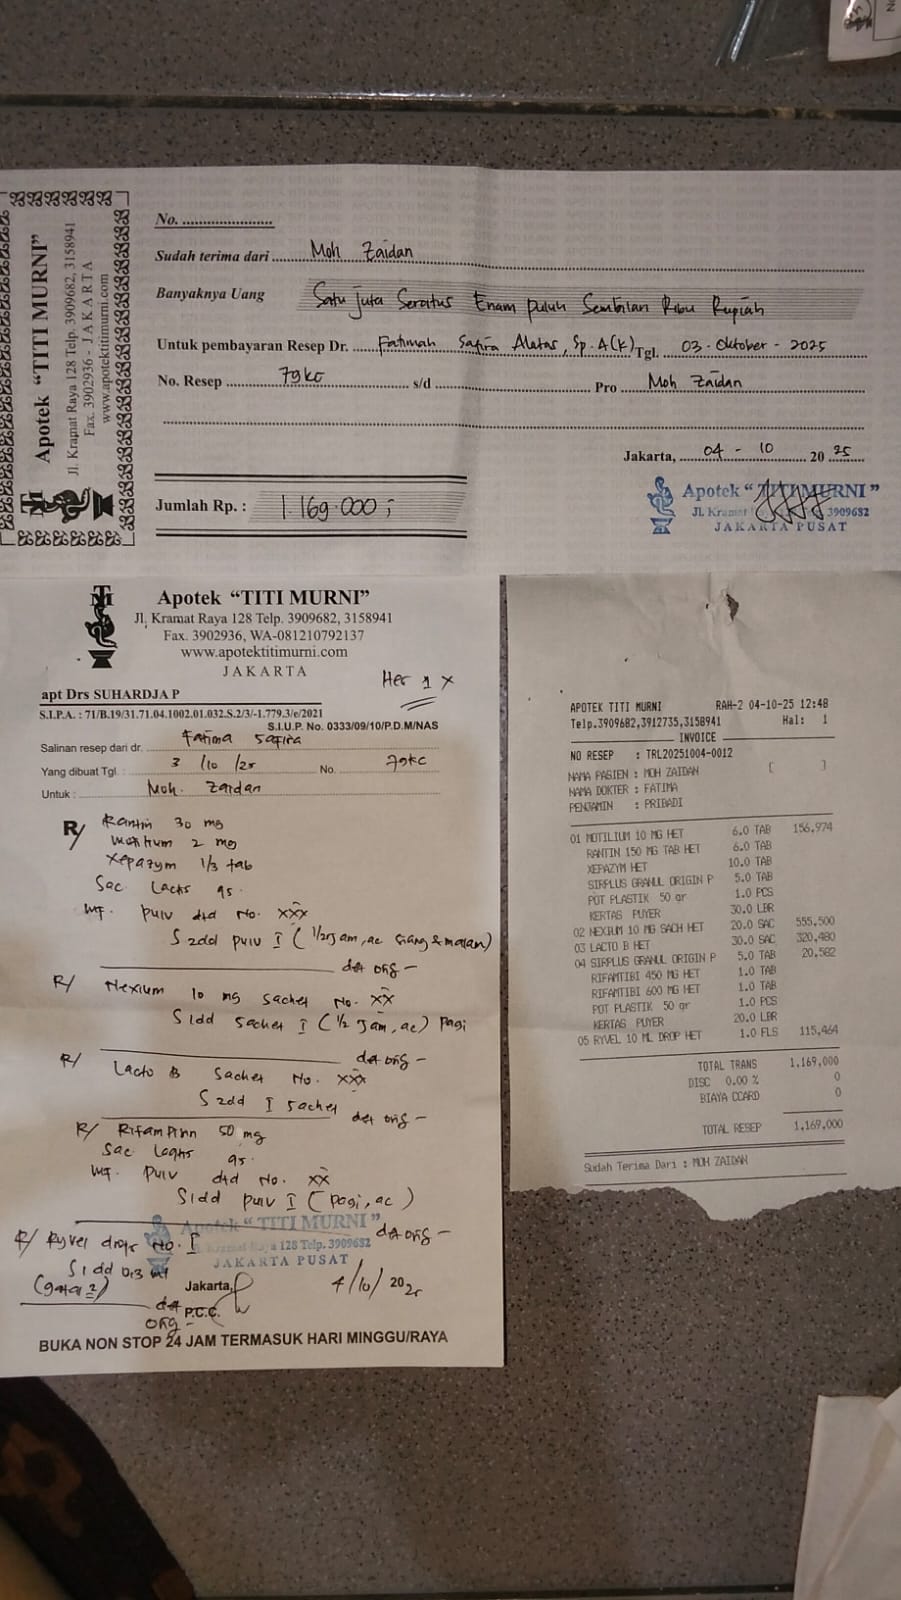 Apotek “TITI MURNI”
Jl. Kramat Raya 128 Telp. 3909682, 3158941
Fax. 3902936 - JAKARTA
www.apotektitimurni.com
No. ......................
Sudah terima dari Moh Zaidan
Banyaknya Uang Satu Juta Seratus Enam puluh Sembilan Ribu Rupiah
Untuk pembayaran Resep Dr. Fatimah Safira Alatas, Sp.A(K) Tgl. 03 - Oktober - 2025
No. Resep 79kc s/d Pro Moh Zaidan
Jakarta, 04 - 10 20 25
Jumlah Rp. : 1.169.000;
Apotek “TITI MURNI”
Jl. Kramat Raya 3909682
JAKARTA PUSAT
Apotek “TITI MURNI”
Jl. Kramat Raya 128 Telp. 3909682, 3158941
Fax. 3902936, WA-081210792137
www.apotektitimurni.com
JAKARTA
Her 1 x
apt Drs SUHARDJA P
S.I.P.A. : 71/B.19/31.71.04.1002.01.032.S.2/3/-1.779.3/e/2021
S.I.U.P. No. 0333/09/10/P.D.M/NAS
Salinan resep dari dr. Fatima Safira
Yang dibuat Tgl. : 3 /10 /25 No. 79kc
Untuk : Moh. Zaidan
R/ Rantin 30 mg
Motilium 2 mg
Xepazym 1/3 tab
Sac Lactis qs.
mf. pulv dtd No. XXX
S 2dd pulv I (1/2 jam, ac siang & malam)
det orig -
R/ Nexium 10 mg sachet No. XX
S 1dd sachet I (1/2 jam, ac) pagi
det orig -
R/ Lacto B sachet No. XXX
S 2dd I sachet
det orig -
R/ Rifampinn 50 mg
Sac Lactis qs.
mf. pulv dtd No. XX
S 1dd pulv I (pagi, ac)
det orig -
R/ Ryvel drops No. I
S 1 dd 0,3 ml
det
orig -
Apotek “TITI MURNI”
Kramat Raya 128 Telp. 3909682
JAKARTA PUSAT
Jakarta, 4/10/ 2025
P.C.C.
BUKA NON STOP 24 JAM TERMASUK HARI MINGGU/RAYA
APOTEK TITI MURNI RAH-2 04-10-25 12:48
Telp.3909682,3912735,3158941 Hal: 1
INVOICE
NO RESEP : TRL20251004-0012
NAMA PASIEN : MOH ZAIDAN [ ]
NAMA DOKTER : FATIMA
PENJAMIN : PRIBADI
01 MOTILIUM 10 MG HET 6.0 TAB 156,974
RANTIN 150 MG TAB HET 6.0 TAB
XEPAZYM HET 10.0 TAB
SIRPLUS GRANUL ORIGIN P 5.0 TAB
POT PLASTIK 50 gr 1.0 PCS
KERTAS PUYER 30.0 LBR
02 NEXIUM 10 MG SACH HET 20.0 SAC 555,500
03 LACTO B HET 30.0 SAC 320,480
04 SIRPLUS GRANUL ORIGIN P 5.0 TAB 20,582
RIFAMTIBI 450 MG HET 1.0 TAB
RIFAMTIBI 600 MG HET 1.0 TAB
POT PLASTIK 50 gr 1.0 PCS
KERTAS PUYER 20.0 LBR
05 RYVEL 10 ML DROP HET 1.0 FLS 115,464
TOTAL TRANS 1,169,000
DISC 0.00 % 0
BIAYA CCARD 0
TOTAL RESEP 1,169,000
Sudah Terima Dari : MOH ZAIDAN